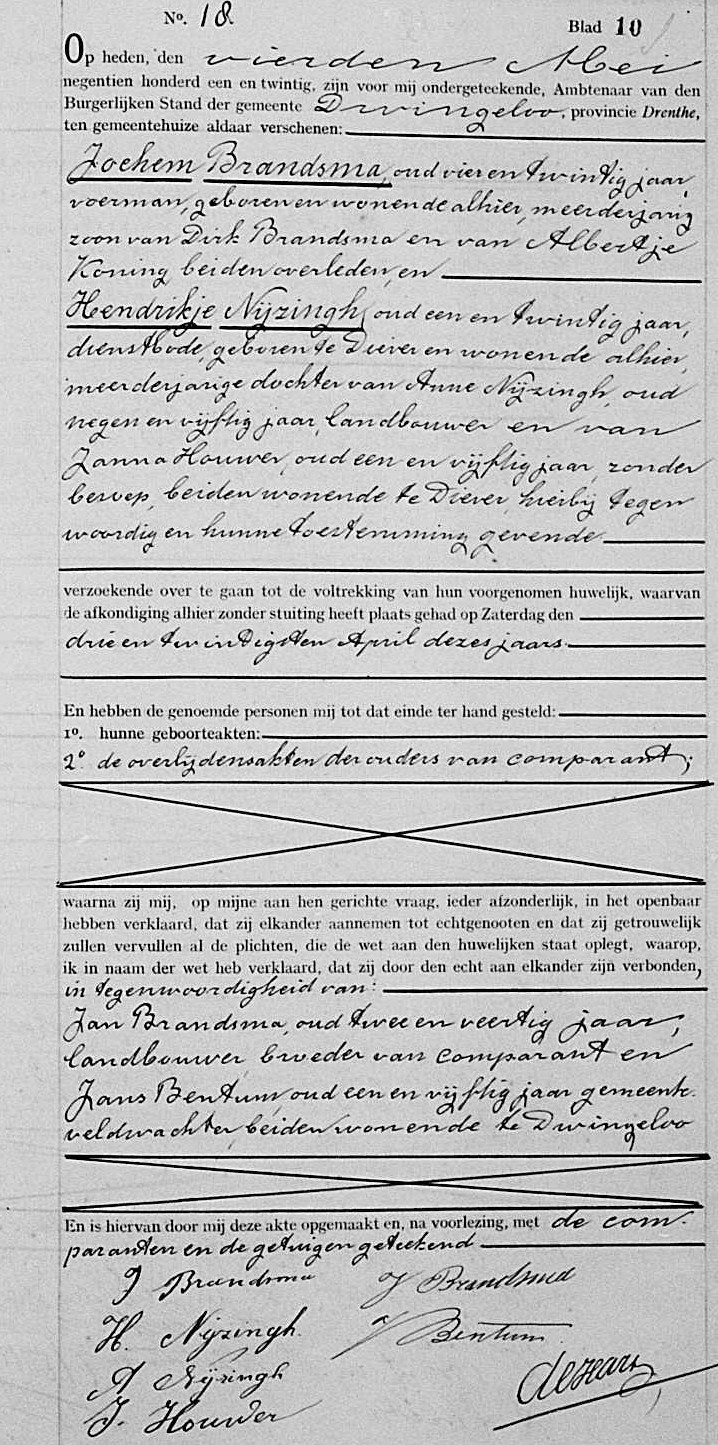 No. 18.
Blad 10
Op heden, den vierden Mei
negentien honderd een en twintig, zijn voor mij ondergeteekende, Ambtenaar van den
Burgerlijken Stand der gemeente Dwingeloo, provincie Drenthe,
ten gemeentehuize aldaar verschenen:
Jochem Brandsma, oud vier en twintig jaar,
voerman, geboren en wonende alhier, meerderjarig
zoon van Dirk Brandsma en van Albertje
Koning, beiden overleden, en
Hendrikje Nijzingh, oud een en twintig jaar,
dienstbode, geboren te Diever en wonende alhier,
meerderjarige dochter van Anne Nijzingh, oud
negen en vijftig jaar, landbouwer en van
Janna Houwer, oud een en vijftig jaar, zonder
beroep, beiden wonende te Diever, hierbij tegen
woordig en hunne toestemming gevende
verzoekende over te gaan tot de voltrekking van hun voorgenomen huwelijk, waarvan
de afkondiging alhier zonder stuiting heeft plaats gehad op Zaterdag den
drie en twintigsten April dezes jaars
En hebben de genoemde personen mij tot dat einde ter hand gesteld:
1o. hunne geboorteakten:
2o. de overlijdensakten der ouders van comparant;
waarna zij mij, op mijne aan hen gerichte vraag, ieder afzonderlijk, in het openbaar
hebben verklaard, dat zij elkander aannemen tot echtgenooten en dat zij getrouwelijk
zullen vervullen al de plichten, die de wet aan den huwelijken staat oplegt, waarop,
ik in naam der wet heb verklaard, dat zij door den echt aan elkander zijn verbonden,
in tegenwoordigheid van:
Jan Brandsma, oud twee en veertig jaar,
landbouwer, broeder van comparant en
Jans Bentum, oud een en vijftig jaar gemeente-
veldwachter, beiden wonende te Dwingeloo
En is hiervan door mij deze akte opgemaakt en, na voorlezing, met de com-
paranten en de getuigen geteekend
J Brandsma J Brandsma
H. Nijzingh J Bentum
A Nijzingh
J. Houwer